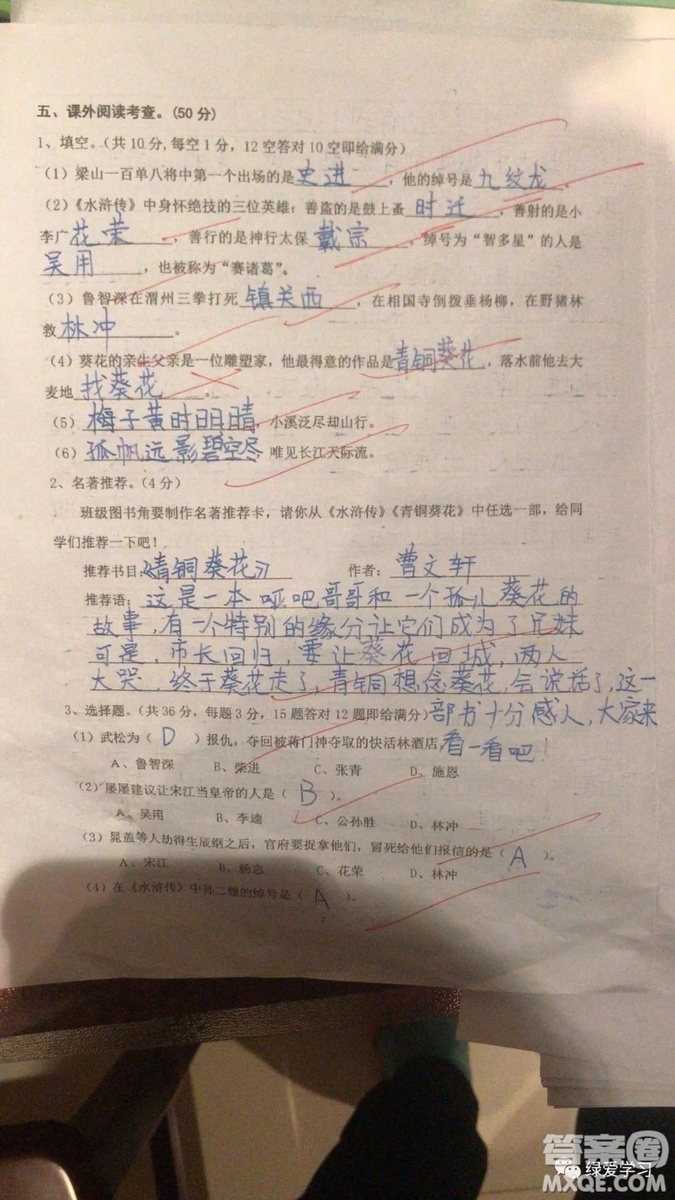 五、课外阅读考查。(50 分)
1、填空。（共 10 分,每空 1 分，12 空答对 10 空即给满分）
(1) 梁山一百单八将中第一个出场的是史进，他的绰号是九纹龙。
(2)《水浒传》中身怀绝技的三位英雄：善盗的是鼓上蚤时迁，善射的是小
李广花荣，善行的是神行太保戴宗，绰号为“智多星”的人是
吴用，也被称为“赛诸葛”。
(3) 鲁智深在渭州三拳打死镇关西，在相国寺倒拨垂杨柳，在野猪林
救林冲。
(4) 葵花的亲生父亲是一位雕塑家，他最得意的作品是青铜葵花，落水前他去大
麦地找葵花。
(5) 梅子黄时日日晴，小溪泛尽却山行。
(6) 孤帆远影碧空尽 唯见长江天际流。
2、名著推荐。(4 分)
班级图书角要制作名著推荐卡，请你从《水浒传》《青铜葵花》中任选一部，给同
学们推荐一下吧！
推荐书目:《青铜葵花》 作者：曹文轩
推荐语：这是一本哑吧哥哥和一个孤儿葵花的
故事，有一个特别的缘分让它们成为了兄妹
可是，市长回归，要让葵花回城，两人
大哭，终于葵花走了，青铜想念葵花，会说话了，这一
3、选择题。（共 36 分，每题 3 分，15 题答对 12 题即给满分）部书十分感人，大家来
(1) 武松为（ D ）报仇，夺回被蒋门神夺取的快活林酒店。看一看吧！
A、鲁智深 B、柴进 C、张青 D、施恩
(2) 屡屡建议让宋江当皇帝的人是（ B ）。
A、吴用 B、李逵 C、公孙胜 D、林冲
(3) 晁盖等人劫得生辰纲之后，官府要捉拿他们，冒死给他们报信的是（ A ）。
A、宋江 B、杨志 C、花荣 D、林冲
(4) 在《水浒传》中孙二娘的绰号是（ A ）。
2
答案圈
绿爱学习
MXQE.COM